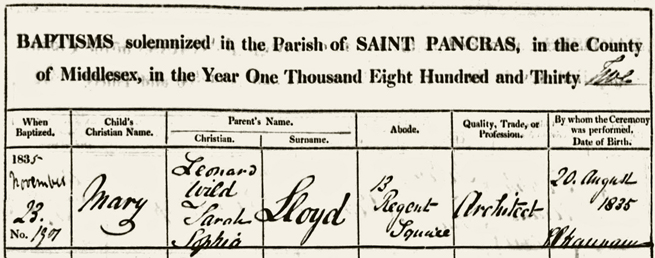 BAPTISMS solemnized in the Parish of SAINT PANCRAS, in the County
of Middlesex, in the Year One Thousand Eight Hundred and Thirty Five
When
Baptized.
Child's
Christian Name.
Parent's Name.
Christian.
Surname.
Abode.
Quality, Trade, or
Profession.
By whom the Ceremony
was performed.
Date of Birth.
1835
November
23.
No.
Mary
Leonard
Wild
Sarah
Sophia
Lloyd
13
Regent
Square
Architect
20. August
1835